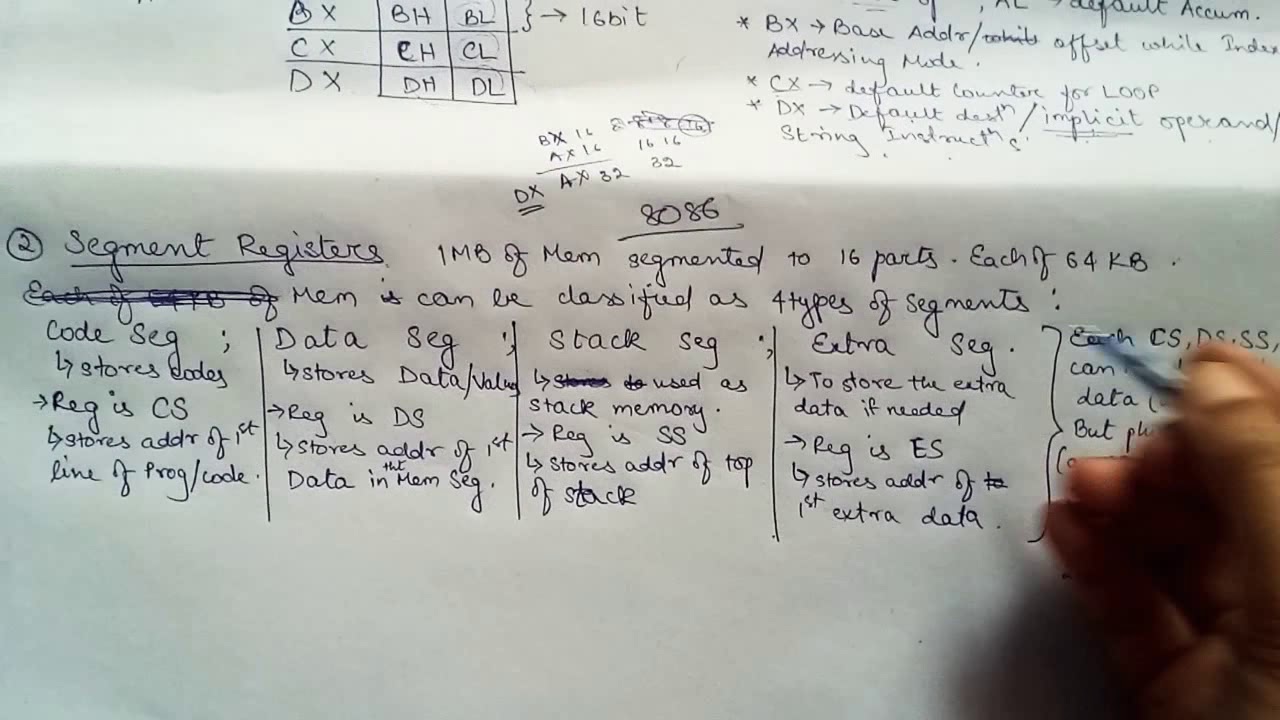 BX BH BL } → 16bit
CX CH CL
DX DH DL
AL → default Accum.
* BX → Base Addr/ offset while Index
Addressing Mode.
* CX → default Counter for LOOP
* DX → Default destn/implicit operand/
String Instructns.
BX 16
AX 16
16 16
AX 32
32
DX
8086
② Segment Registers 1MB of Mem segmented to 16 parts. Each of 64 KB.
Each of of Mem is can be classified as 4types of segments:
Code Seg ;
↳ stores codes
→ Reg is CS
↳ stores addr of 1st
line of Prog/code.
Data Seg ;
↳ stores Data/Value
→ Reg is DS
↳ stores addr of 1st
Data in the Mem Seg.
Stack Seg ;
↳ stores to used as
stack memory.
→ Reg is SS
↳ stores addr of top
of stack
Extra Seg.
↳ To store the extra
data if needed
→ Reg is ES
↳ stores addr of to
1st extra data.
Each CS, DS, SS,
can
data
But